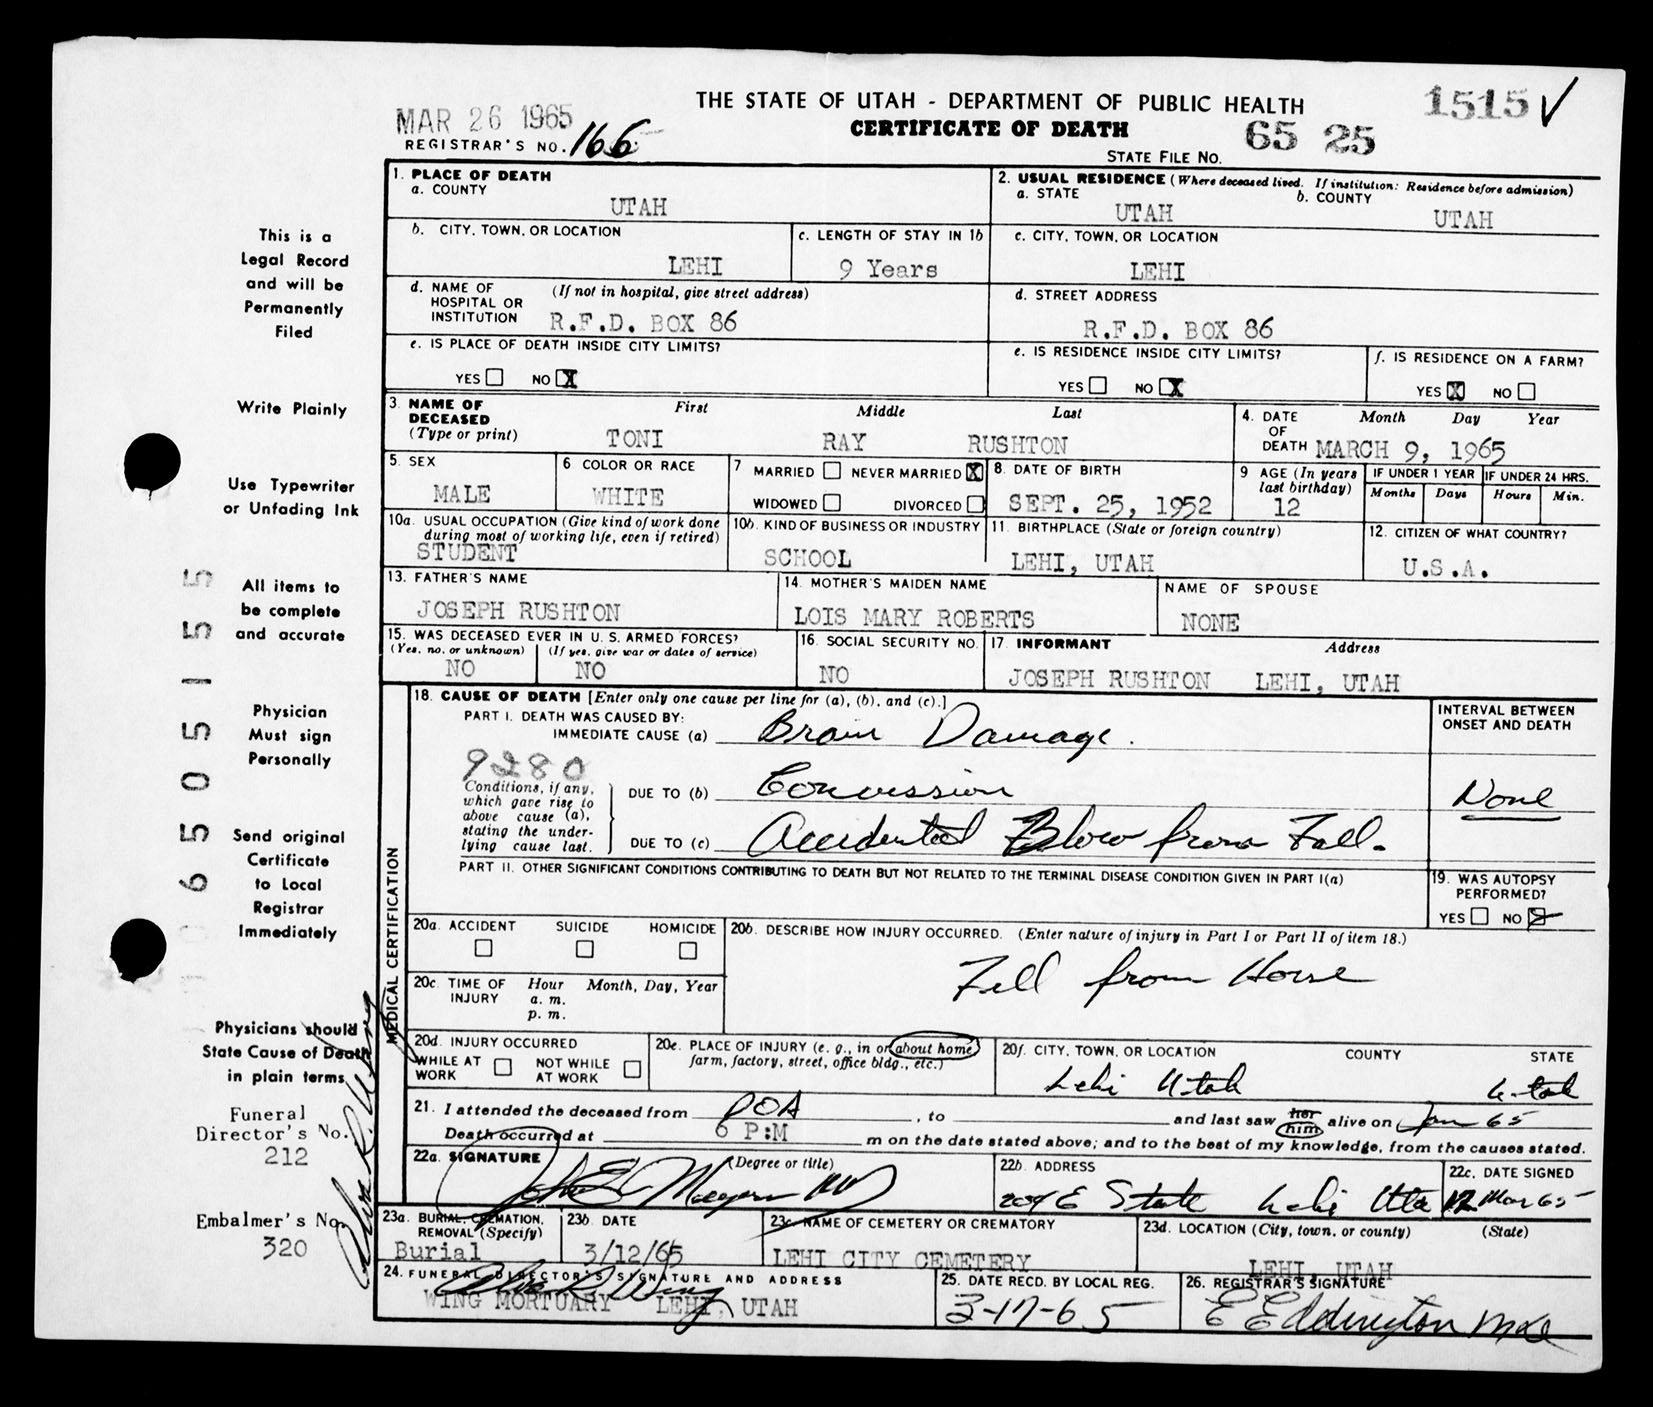 THE STATE OF UTAH - DEPARTMENT OF PUBLIC HEALTH
CERTIFICATE OF DEATH
1515 ✓
MAR 26 1965
REGISTRAR'S NO. 166
STATE FILE NO. 65 25
This is a
Legal Record
and will be
Permanently
Filed
Write Plainly
Use Typewriter
or Unfading Ink
All items to
be complete
and accurate
Physician
Must sign
Personally
Send original
Certificate
to Local
Registrar
Immediately
Physicians should
State Cause of Death
in plain terms
Funeral
Director's No.
212
Embalmer's No.
320
1. PLACE OF DEATH
a. COUNTY
UTAH
2. USUAL RESIDENCE (Where deceased lived. If institution: Residence before admission)
a. STATE
UTAH
b. COUNTY
UTAH
b. CITY, TOWN, OR LOCATION
LEHI
c. LENGTH OF STAY IN 1b
9 Years
c. CITY, TOWN, OR LOCATION
LEHI
d. NAME OF HOSPITAL OR INSTITUTION (If not in hospital, give street address)
R.F.D. BOX 86
d. STREET ADDRESS
R.F.D. BOX 86
e. IS PLACE OF DEATH INSIDE CITY LIMITS?
YES NO X
e. IS RESIDENCE INSIDE CITY LIMITS?
YES NO X
f. IS RESIDENCE ON A FARM?
YES X NO
3. NAME OF DECEASED (Type or print)
First Middle Last
TONI RAY RUSHTON
4. DATE OF DEATH
Month Day Year
MARCH 9, 1965
5. SEX
MALE
6 COLOR OR RACE
WHITE
7 MARRIED NEVER MARRIED X
WIDOWED DIVORCED
8. DATE OF BIRTH
SEPT. 25, 1952
9 AGE (In years last birthday)
12
IF UNDER 1 YEAR
Months Days
IF UNDER 24 HRS.
Hours Min.
10a. USUAL OCCUPATION (Give kind of work done during most of working life, even if retired)
STUDENT
10b. KIND OF BUSINESS OR INDUSTRY
SCHOOL
11. BIRTHPLACE (State or foreign country)
LEHI, UTAH
12. CITIZEN OF WHAT COUNTRY?
U.S.A.
13. FATHER'S NAME
JOSEPH RUSHTON
14. MOTHER'S MAIDEN NAME
LOIS MARY ROBERTS
NAME OF SPOUSE
NONE
15. WAS DECEASED EVER IN U.S. ARMED FORCES?
(Yes, no, or unknown) (If yes, give war or dates of service)
NO NO
16. SOCIAL SECURITY NO.
NO
17. INFORMANT Address
JOSEPH RUSHTON LEHI, UTAH
MEDICAL CERTIFICATION
18. CAUSE OF DEATH [Enter only one cause per line for (a), (b), and (c).]
PART I. DEATH WAS CAUSED BY:
IMMEDIATE CAUSE (a) Brain Damage.
9280
Conditions, if any, which gave rise to above cause (a), stating the underlying cause last.
DUE TO (b) Concussion
DUE TO (c) Accidental Blow from Fall.
INTERVAL BETWEEN ONSET AND DEATH
None
PART II. OTHER SIGNIFICANT CONDITIONS CONTRIBUTING TO DEATH BUT NOT RELATED TO THE TERMINAL DISEASE CONDITION GIVEN IN PART I(a)
19. WAS AUTOPSY PERFORMED?
YES NO
20a. ACCIDENT SUICIDE HOMICIDE
20b. DESCRIBE HOW INJURY OCCURRED. (Enter nature of injury in Part I or Part II of item 18.)
Fell from Horse
20c. TIME OF INJURY
Hour Month, Day, Year
a. m.
p. m.
20d. INJURY OCCURRED
WHILE AT WORK NOT WHILE AT WORK
20e. PLACE OF INJURY (e. g., in or about home, farm, factory, street, office bldg., etc.)
20f. CITY, TOWN, OR LOCATION COUNTY STATE
Lehi Utah Utah
21. I attended the deceased from DOA, to and last saw her him alive on Jan 65
Death occurred at 6 P:M m on the date stated above; and to the best of my knowledge, from the causes stated.
22a. SIGNATURE (Degree or title)
22b. ADDRESS
209 E State Lehi Utah
22c. DATE SIGNED
12 Mar 65
23a. BURIAL, CREMATION, REMOVAL (Specify)
Burial
23b. DATE
3/12/65
23c. NAME OF CEMETERY OR CREMATORY
LEHI CITY CEMETERY
23d. LOCATION (City, town, or county) (State)
LEHI, UTAH
24. FUNERAL DIRECTOR'S SIGNATURE AND ADDRESS
WING MORTUARY LEHI, UTAH
25. DATE RECD. BY LOCAL REG.
3-17-65
26. REGISTRAR'S SIGNATURE
E Eddington